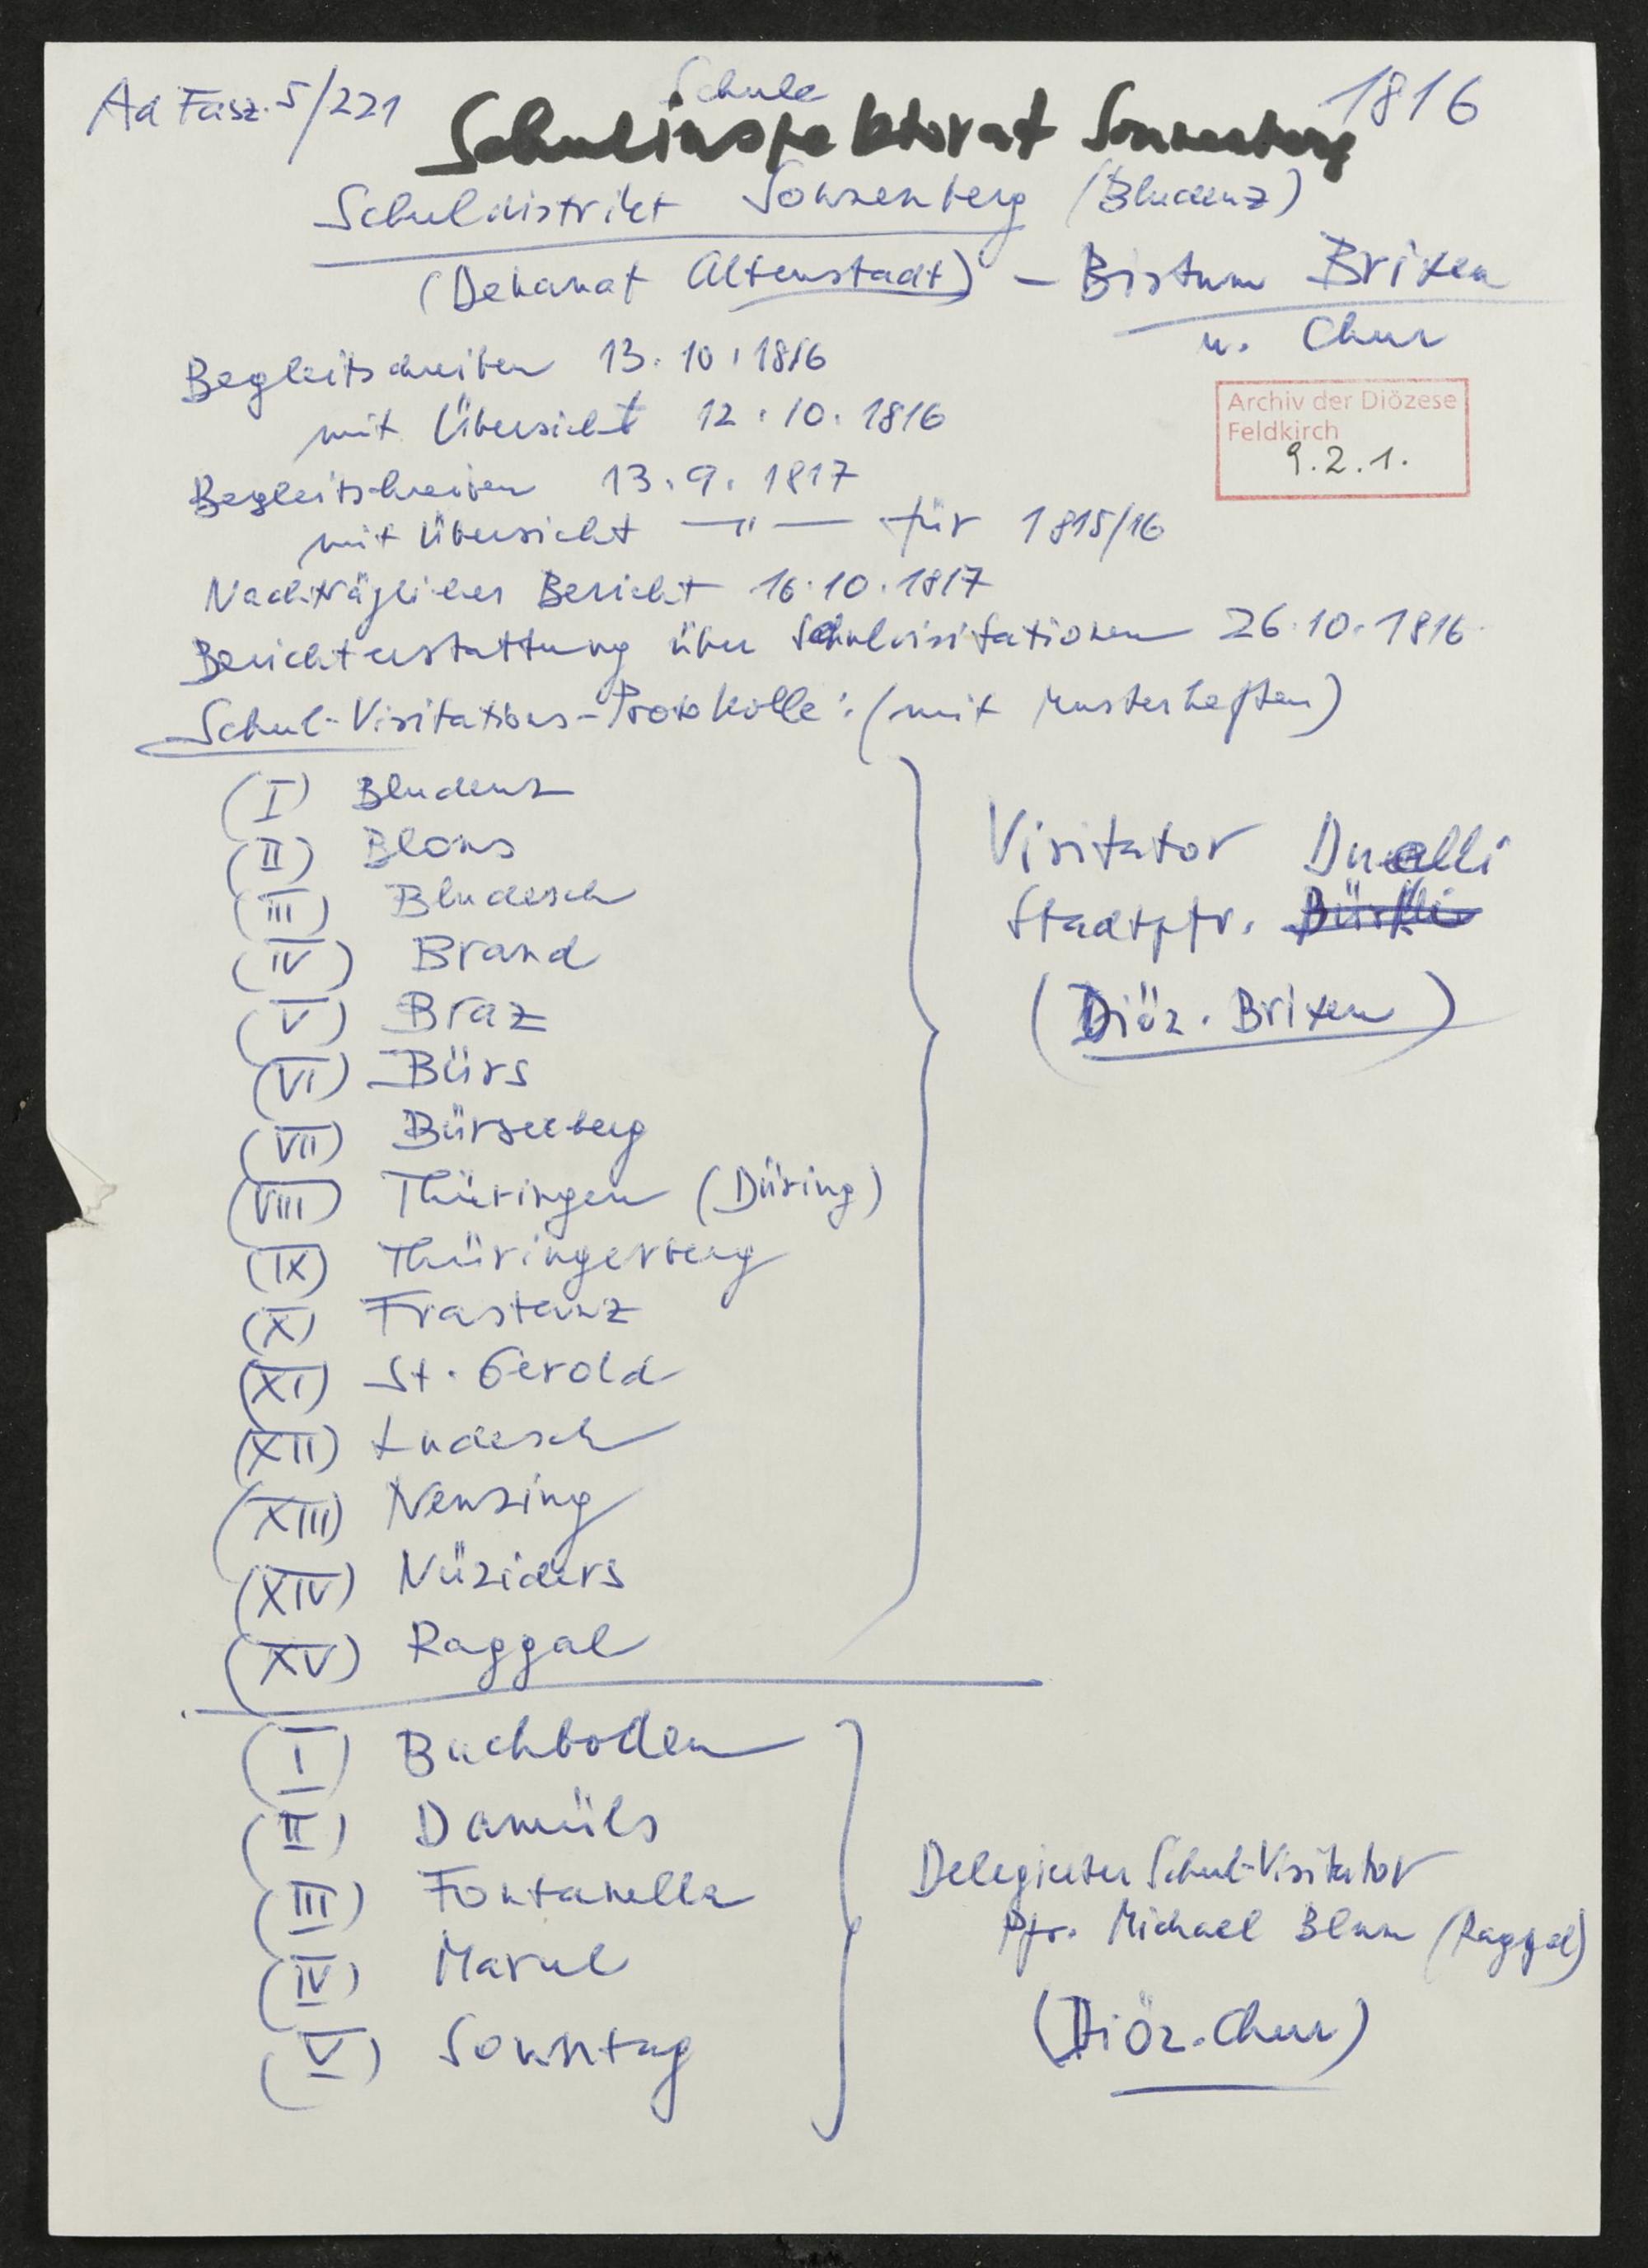 Ad Fasz. 5/221
Schule
1816
Schulinspektorat Sonnenberg
Schuldistrikt Sonnenberg (Bludenz)
(Dekanat Altenstadt) – Bistum Brixen
u. Chur
Begleitschreiben 13.10.1816
mit Übersicht 12.10.1816
Archiv der Diözese
Feldkirch
9.2.1.
Begleitschreiben 13.9.1817
mit Übersicht —"— für 1815/16
Nachträglicher Bericht 16.10.1817
Berichterstattung über Schulvisitationen 26.10.1816
Schul-Visitations-Protokolle: (mit Musterheften)
(I) Bludenz
(II) Blons
(III) Bludesch
(IV) Brand
(V) Braz
(VI) Bürs
(VII) Bürserberg
(VIII) Thüringen (Düring)
(IX) Thüringerberg
(X) Frastanz
(XI) St. Gerold
(XII) Ludesch
(XIII) Nenzing
(XIV) Nüziders
(XV) Raggal
Visitator Duelli
Stadtpfr.
(Diöz. Brixen)
(I) Buchboden
(II) Damüls
(III) Fontanella
(IV) Marul
(V) Sonntag
Delegierter Schul-Visitator
Pfr. Michael Blum (Raggal)
(Diöz. Chur)